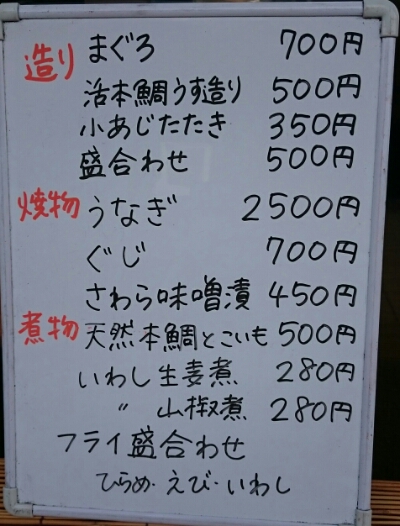 造り まぐろ 700円
活本鯛うす造り 500円
小あじたたき 350円
盛合わせ 500円
焼物 うなぎ 2500円
ぐじ 700円
さわら味噌漬 450円
煮物 天然本鯛とこいも 500円
いわし生姜煮 280円
〃 山椒煮 280円
フライ盛合わせ
ひらめ・えび・いわし